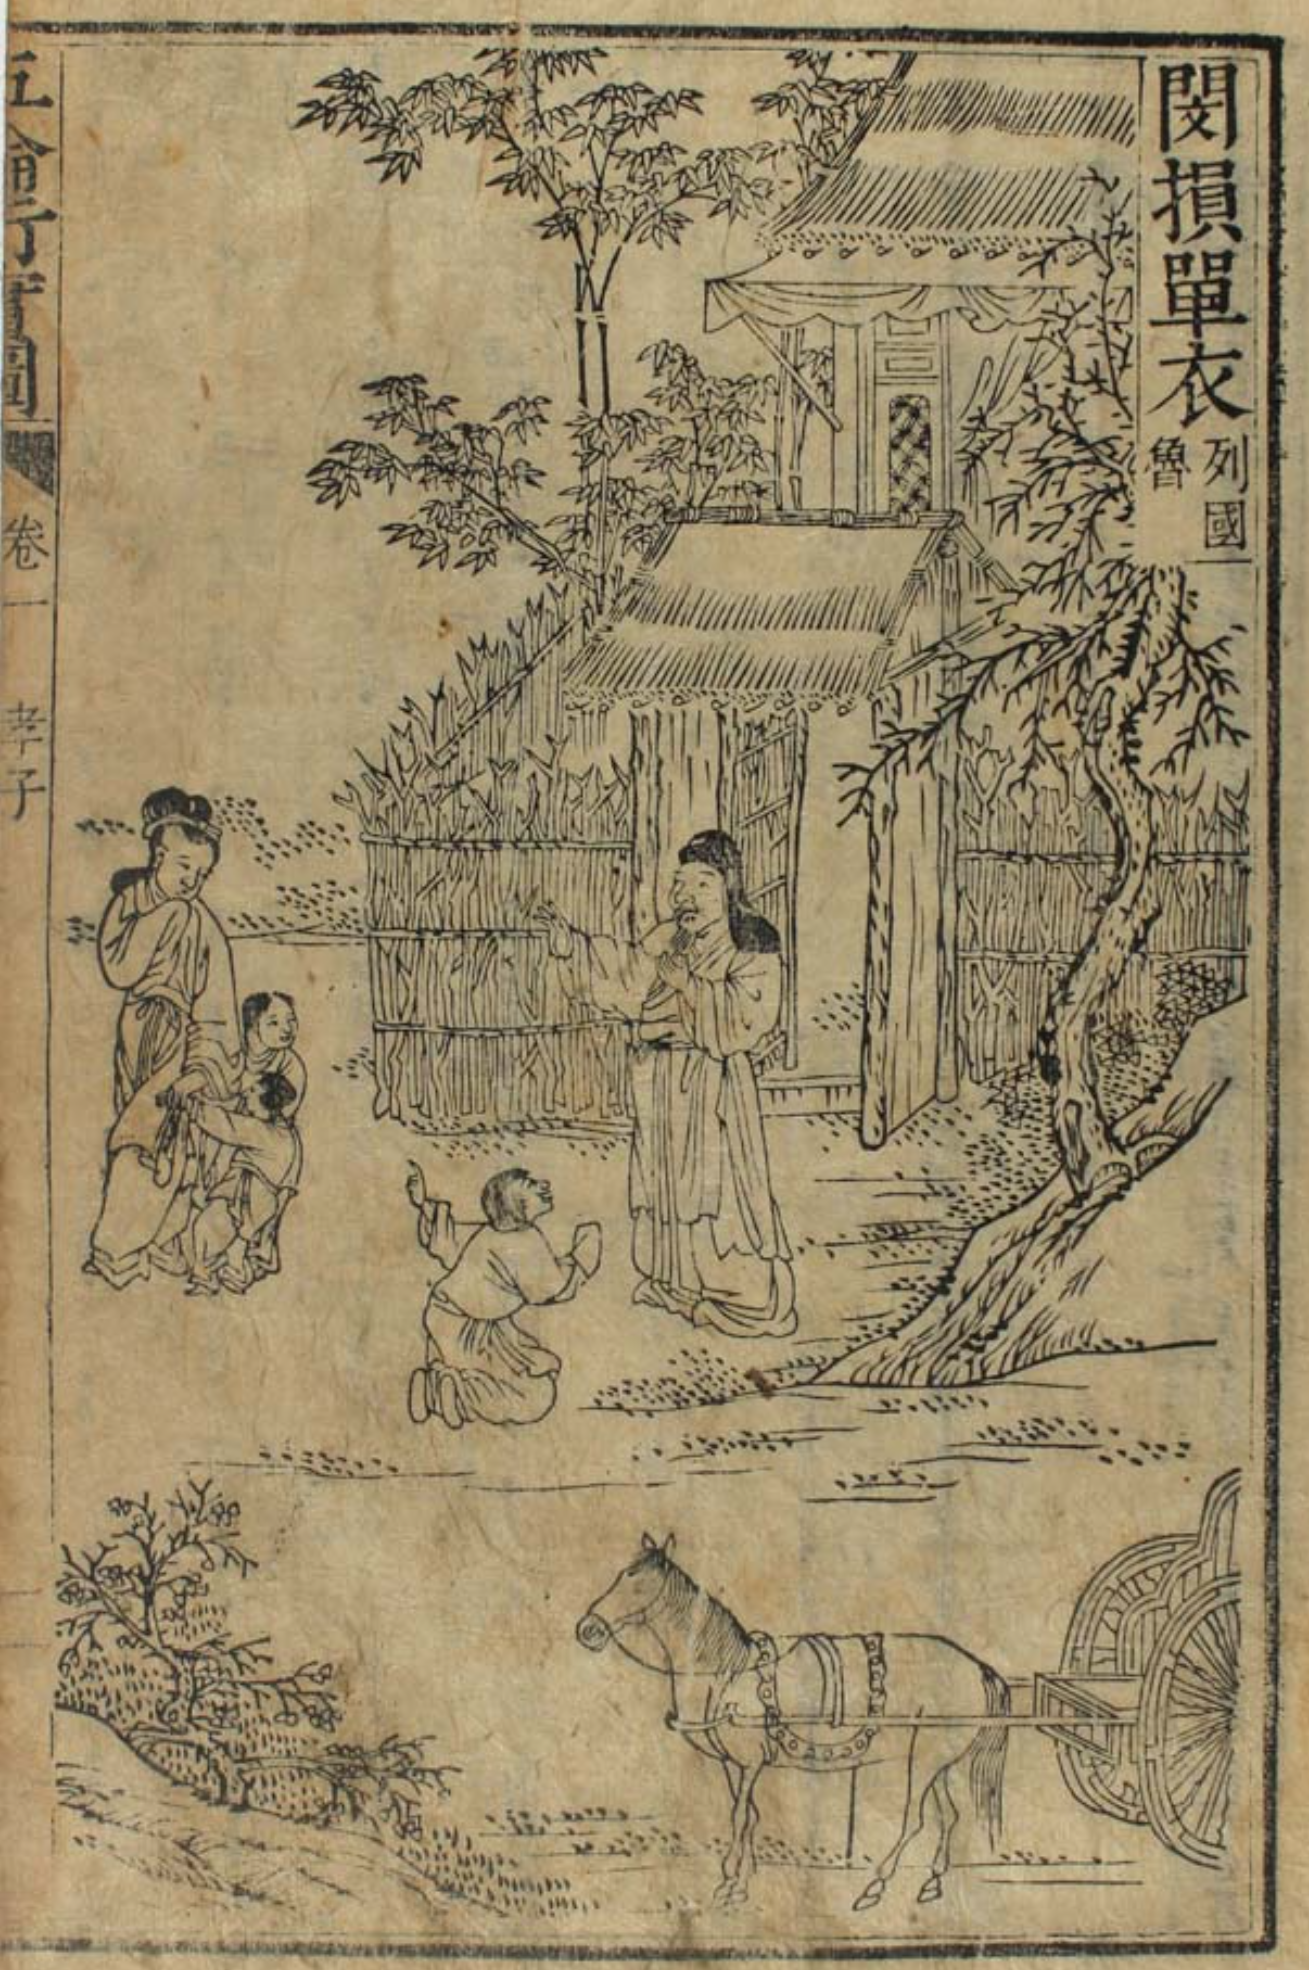 閔損單衣
列國
魯
五倫行實圖
卷一
孝子